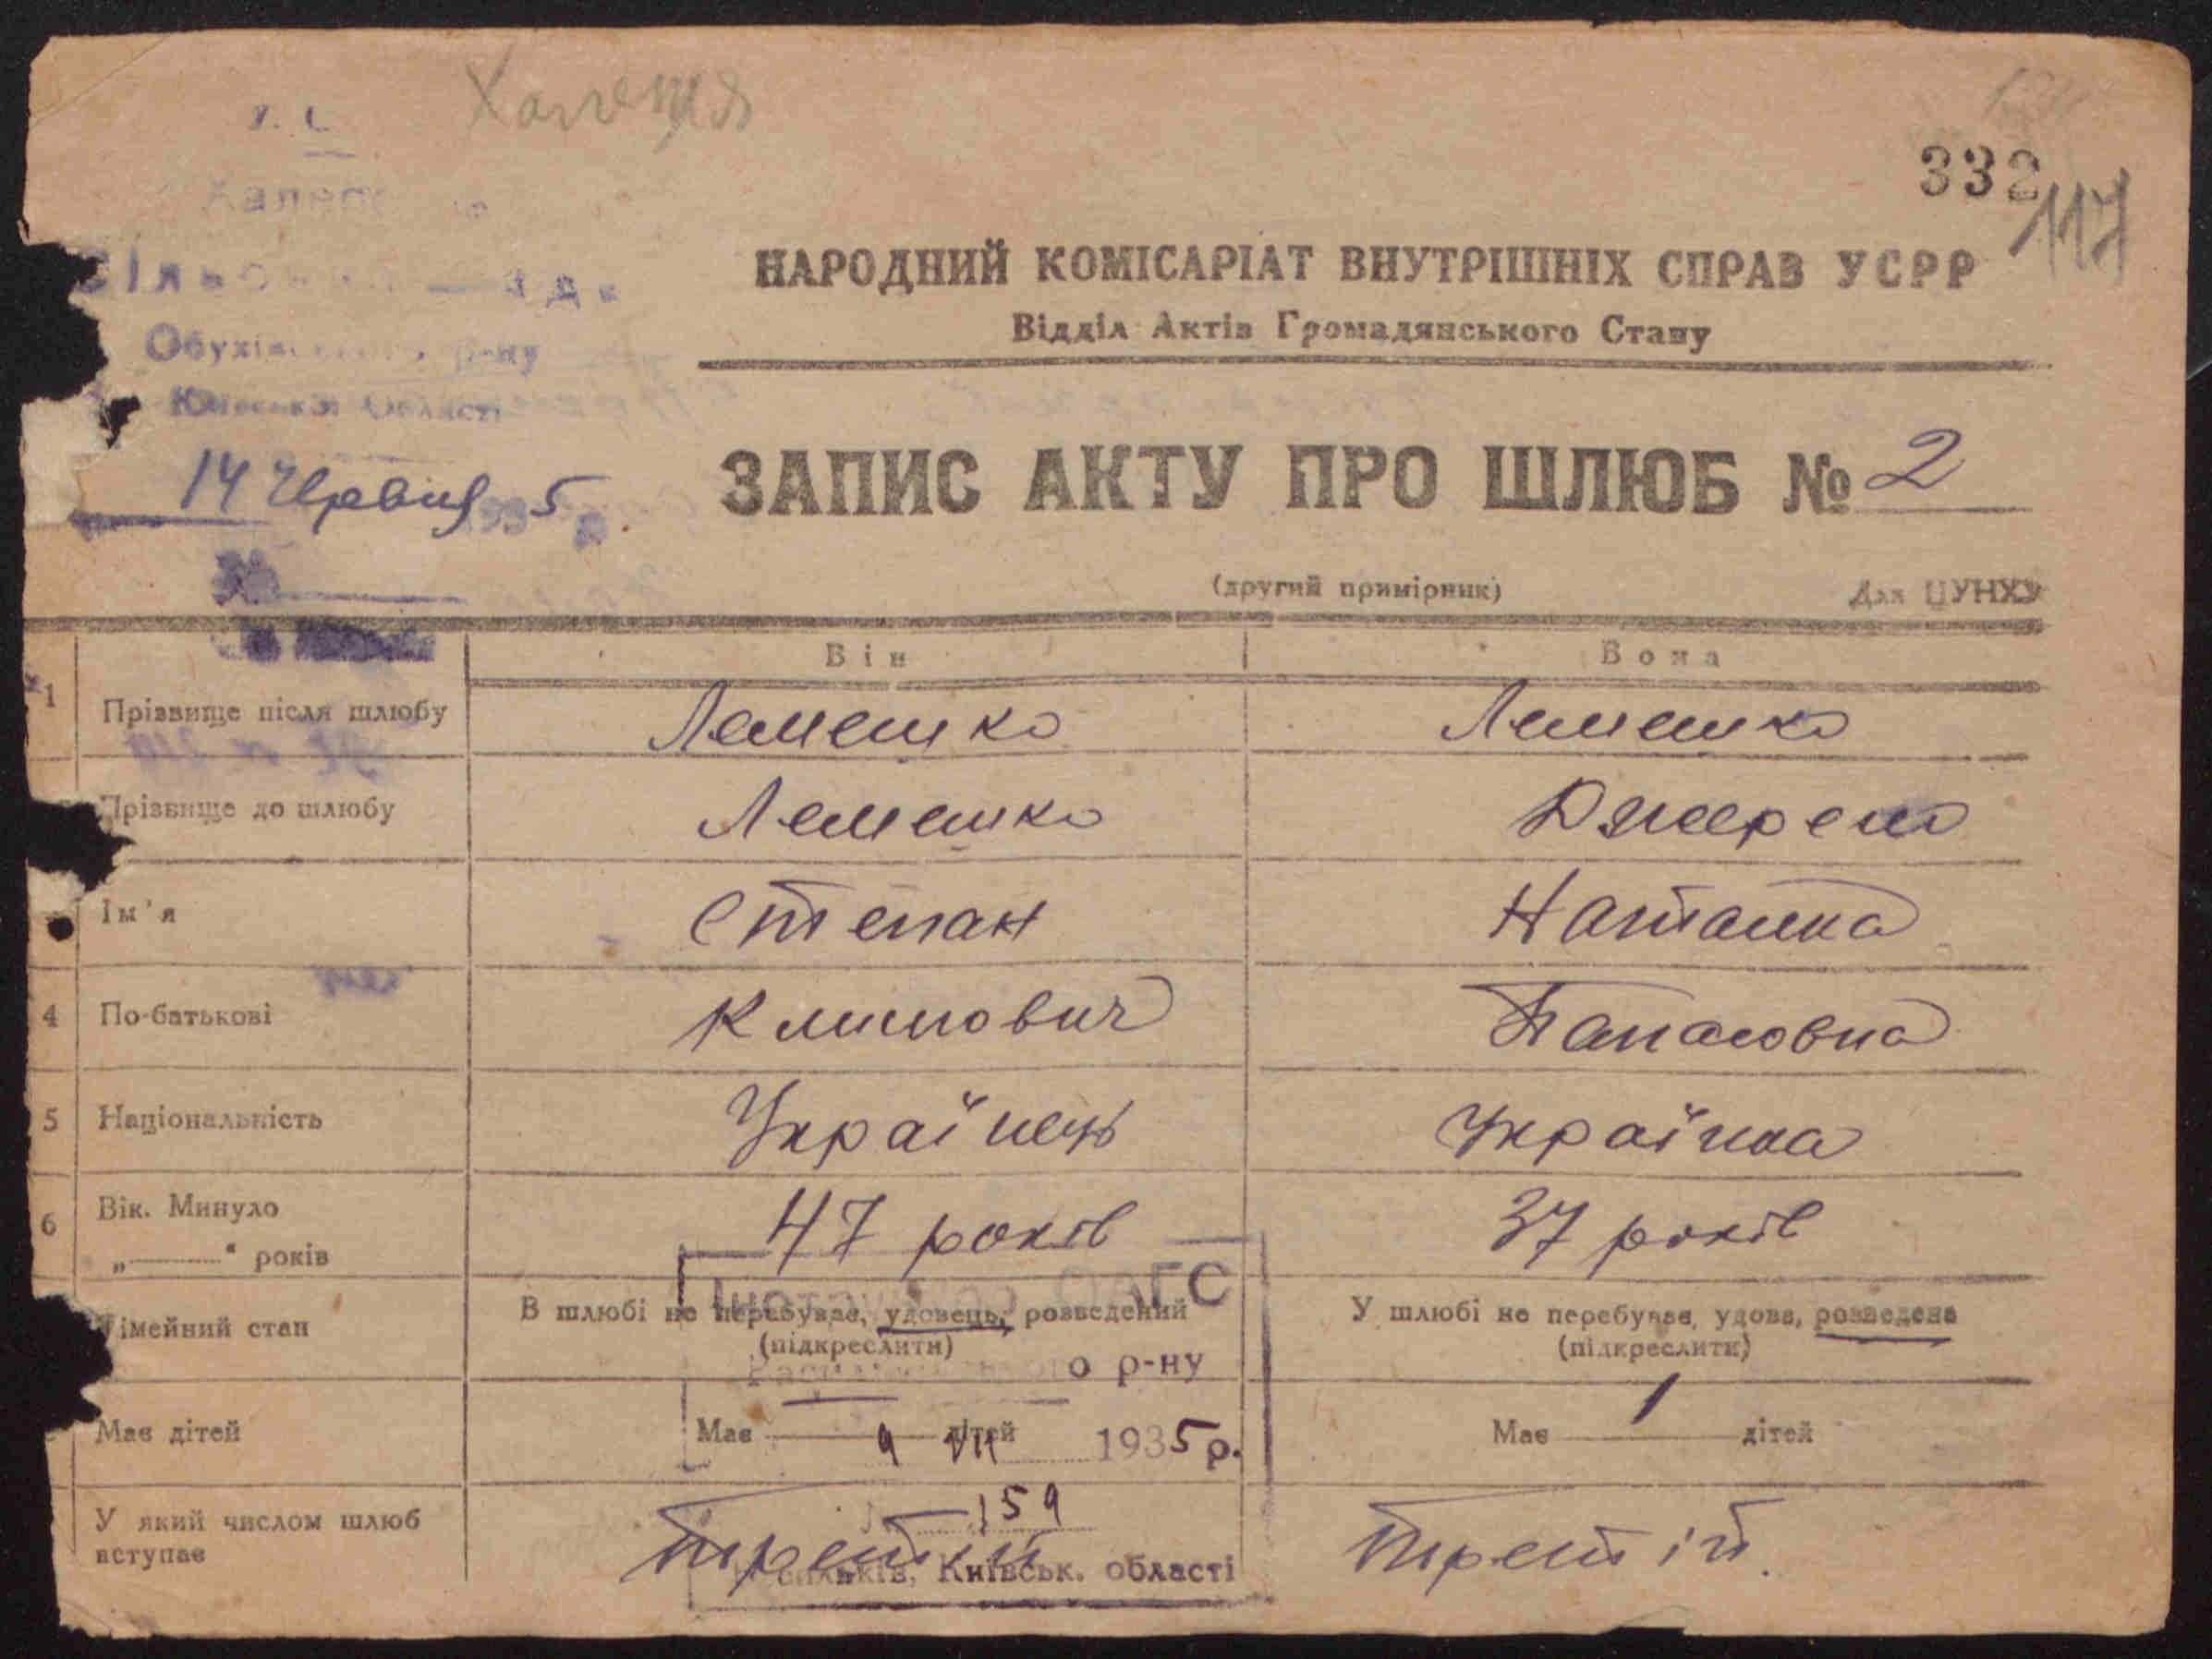 Халепя
332
117
Обухів р-ну
Київської Області
14 Червня 1935 р.
НАРОДНИЙ КОМІСАРІАТ ВНУТРІШНІХ СПРАВ УСРР
Відділ Актів Громадянського Стану
ЗАПИС АКТУ ПРО ШЛЮБ № 2
(другий примірник) Для ЦУНХУ
Він Вона
1 Прізвище після шлюбу Лемешко Лемешко
Прізвище до шлюбу Лемешко Джерело
Ім'я Степан Наталка
4 По-батькові Климович Панасовна
5 Національність Українець Українка
6 Вік. Минуло „ “ років 47 років 37 років
Сімейний стан В шлюбі не перебуває, удовець, розведений У шлюбі не перебуває, удова, розведена
(підкреслити) (підкреслити)
Інструктор ОАГС
о р-ну
Має дітей Має — дітей Має 1 дітей
9 VII 1935 р.
159
У який числом шлюб вступає третій третій.
Київськ. області